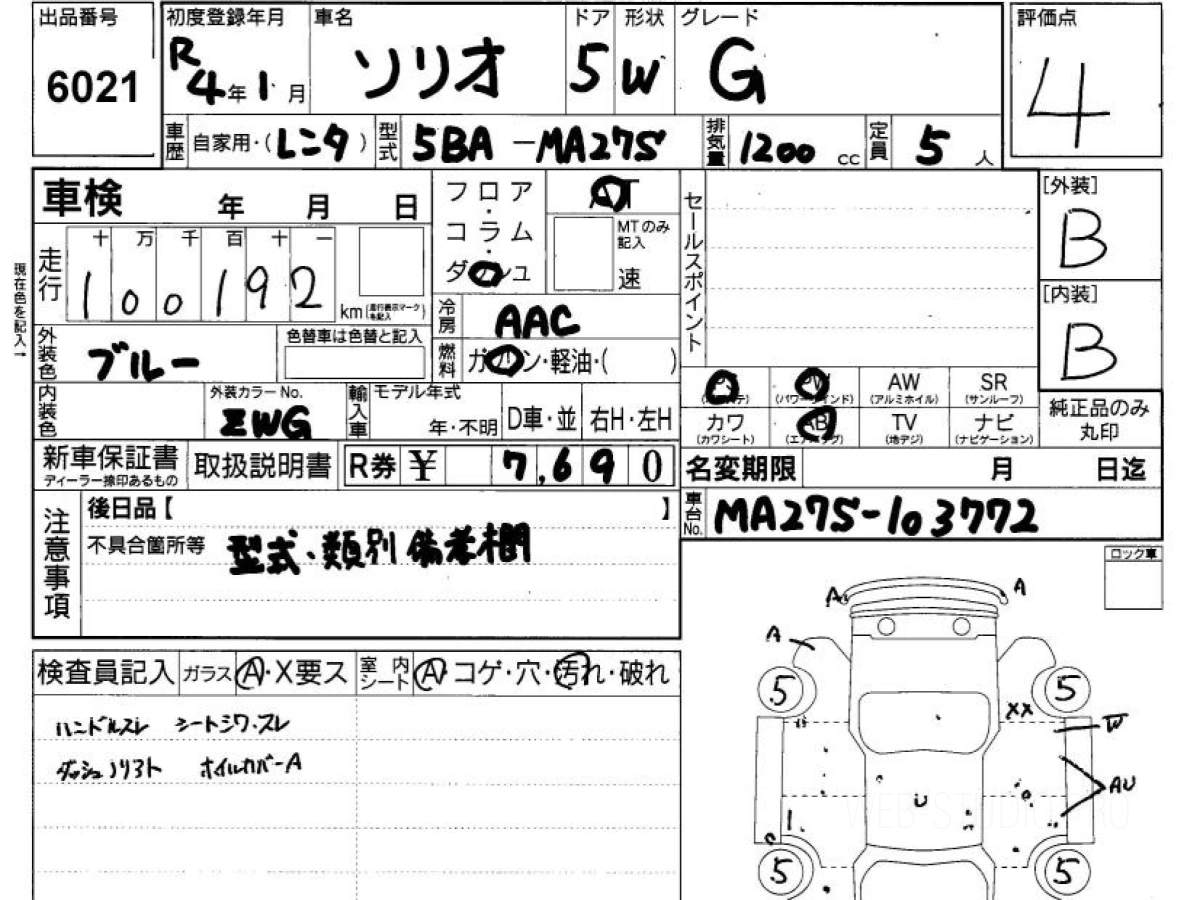 出品番号 初度登録年月 車名 ドア 形状 グレード 評価点
6021 R4年1月 ソリオ 5 W G 4
車歴 自家用・(レンタ) 型式 5BA-MA27S 排気量 1200cc 定員 5人
車検 年 月 日 フロア・コラム・ダッシュ AT セールスポイント [外装]
B
MTのみ記入 速
走行 十 万 千 百 十 一
100192 km(走行表示マークを記入)
現在色を記入→
[内装]
B
冷房 AAC
外装色 ブルー 色替車は色替と記入 燃料 ガソリン・軽油・( )
PS (パワステ) PW (パワーウインド) AW (アルミホイル) SR (サンルーフ)
内装色 外装カラーNo. ZWG 輸入車 モデル年式 年・不明 D車・並 右H・左H
カワ (カワシート) AB (エアバッグ) TV (地デジ) ナビ (ナビゲーション) 純正品のみ丸印
新車保証書 ディーラー捺印あるもの 取扱説明書 R券 ¥ 7,690 名変期限 月 日迄
車台No. MA27S-103772
注意事項 後日品【 】
不具合箇所等 型式・類別 備考欄
ロック車
A A
A
検査員記入 ガラス A・X要ス 室内シート A・コゲ・穴・汚れ・破れ
5 5
ハンドルスレ シートシワ・スレ
XX
W
ダッシュノリアト ホイルカバーA
AU
U
5 5
WEB-STUDIO.RU